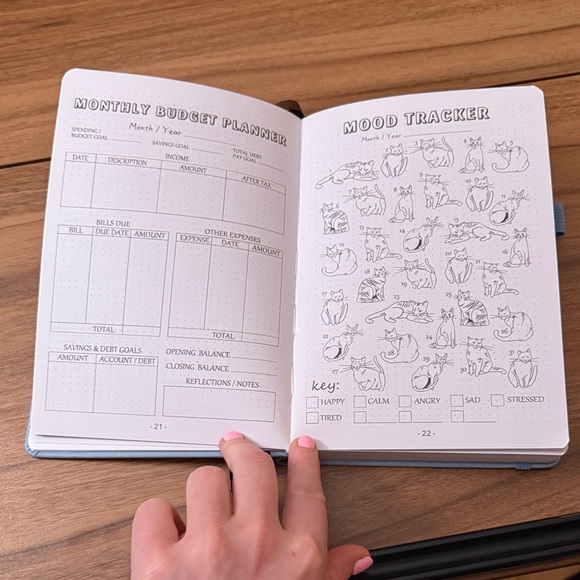 MONTHLY BUDGET PLANNER
Month / Year
SPENDING /
BUDGET GOAL
SAVINGS GOAL
TOTAL DEBT
PAY GOAL
INCOME
DATE DESCRIPTION AMOUNT AFTER TAX
BILLS DUE
BILL DUE DATE AMOUNT
TOTAL:
OTHER EXPENSES
EXPENSE DATE AMOUNT
TOTAL:
SAVINGS & DEBT GOALS
AMOUNT ACCOUNT / DEBT
OPENING BALANCE
CLOSING BALANCE
REFLECTIONS / NOTES
- 21 -
MOOD TRACKER
Month / Year
key:
HAPPY CALM ANGRY SAD STRESSED
TIRED
- 22 -